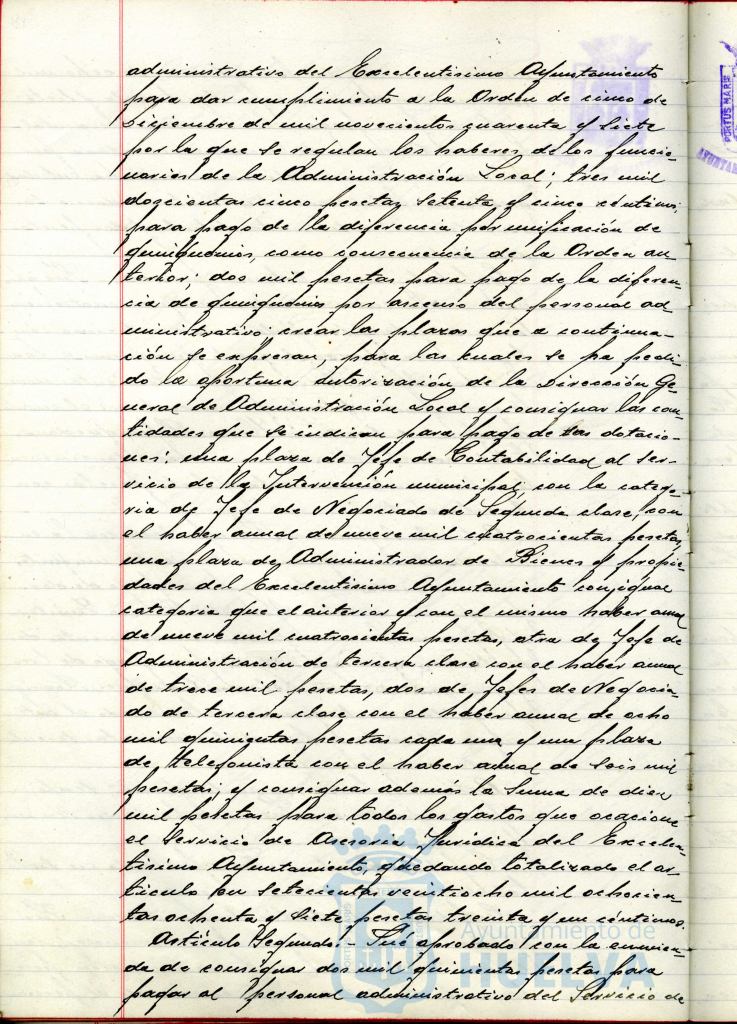 administrativo del Excelentisimo Ayuntamiento
para dar cumplimiento a la Orden de cinco de
Diciembre de mil novecientos cuarenta y siete
por la que se regulan los haberes de los funcio-
narios de la Administración Local; tres mil
doscientas cinco pesetas setenta y cinco centimos,
para pago de la diferencia por unificación de
quinquenios, como consecuencia de la Orden an-
terior; dos mil pesetas para pago de la diferen-
cia de quinquenios por ascenso del personal ad-
ministrativo; crear las plazas que a continua-
ción se expresan, para las cuales se ha pedi-
do la oportuna autorización de la Dirección Ge-
neral de Administración Local y consignar las can-
tidades que se indican para pago de las dotacio-
nes: una plaza de Jefe de Contabilidad al ser-
vicio de la Intervención municipal, con la catego-
ria de Jefe de Negociado de Segunda clase, con
el haber anual de nueve mil cuatrocientas pesetas,
una plaza de Administrador de Bienes y propie-
dades del Excelentisimo Ayuntamiento con igual
categoria que el anterior y con el mismo haber anual
de nueve mil cuatrocientas pesetas, otra de Jefe de
Administración de tercera clase con el haber anual
de trece mil pesetas, dos de Jefes de Negocia-
do de tercera clase con el haber anual de ocho
mil quinientas pesetas cada una y una plaza
de telefonista con el haber anual de seis mil
pesetas; y consignar además la suma de diez
mil pesetas para todos los gastos que ocasione
el Servicio de Asesoria Juridica del Excelen-
tisimo Ayuntamiento, quedando totalizado el ar-
ticulo en setecientas veintiocho mil ochocien-
tas ochenta y siete pesetas treinta y un centimos.
Artículo Segundo.- Fué aprobado con la enmien-
da de consignar dos mil quinientas pesetas para
pagar al personal administrativo del Servicio de
Ayuntamiento de
HUELVA
PORTUS MARIS